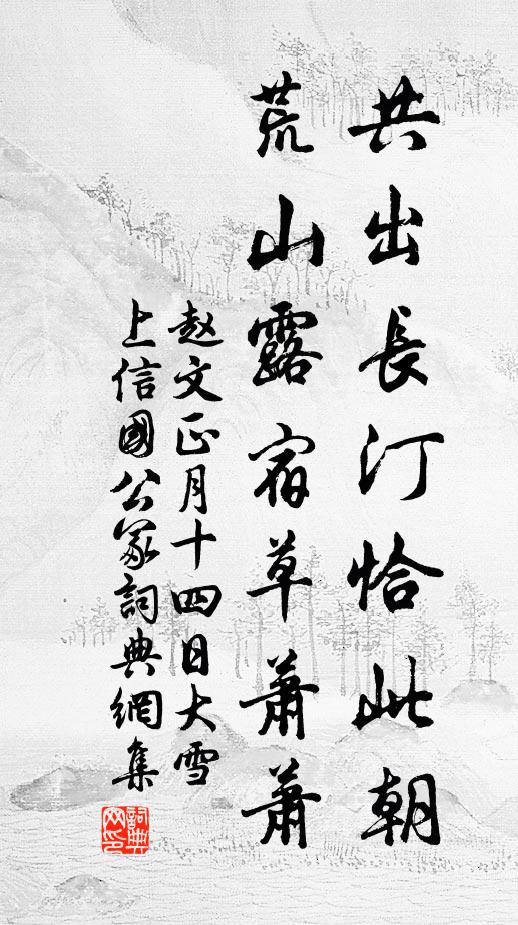 共出長汀恰此朝
荒山露宿草蕭蕭
赵文正月十四日大雪
上信國公冢詞典網集
詞典網印